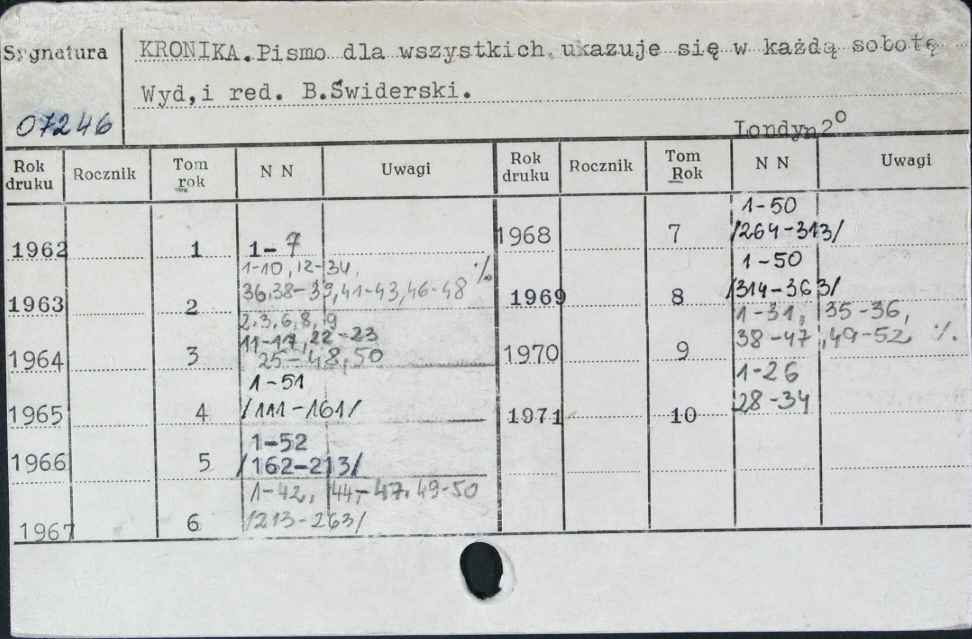 Sygnatura
KRONIKA.Pismo dla wszystkich, ukazuje się w każdą sobotę
Wyd,i red. B.Świderski.
07246
Londyn 2°
Rok druku Rocznik Tom rok N N Uwagi Rok druku Rocznik Tom Rok N N Uwagi
1962 1 1-7
1963 2 1-10, 12-34, 36,38-39,41-43,46-48 %
1964 3 2,3,6,8,9 11-17,22-23 25-48,50
1965 4 1-51 /111-161/
1966 5 1-52 /162-213/
1967 6 1-42, 44-47, 49-50 /213-263/
1968 7 1-50 /264-313/
1969 8 1-50 /314-363/
1970 9 1-31, 35-36, 38-47, 49-52 %.
1971 10 1-26 28-34